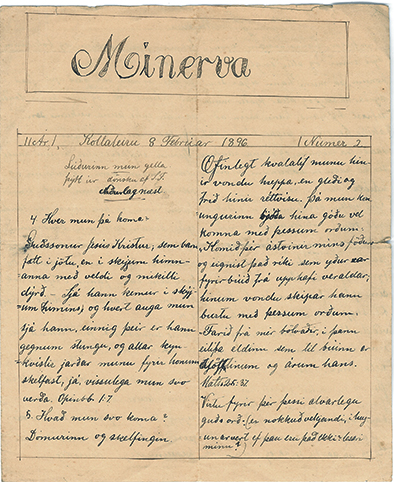 Minerva
1 Ár. Kollaleiru 8 Februar 1896. Númer 2
Lúðurinn mun gella
þýtt úr dönsku af
4 Hver mun þá koma?
Guðssonur Jesús Kristur, sem kom
fátt í jötu, en í skýjum himn-
anna með veldi og mikilli
dýrð. – Sjá hann kemur í skýj-
um himins, og hvert auga mun
sjá hann, einnig þeir er hann
gegnum stungu, og allar kyn-
kvíslir jarðar munu fyrir honum
skelfast, já, vissulega mun svo
verða. Opinb. 1.7
5. Hvað mun svo koma?
Dómurinn og skelfingin.
Ofinlegt kvalalíf munu hin-
ir vondu hreppa, en gleði og
frið hinir réttvísu. Þá mun kon-
ungurinn bjóða hina góðu vel
komna með þessum orðum.
Komið þér ástvinir míns föður
og eignist það ríki sem yður var
fyrirbúið frá upphafi veraldar;
hinum vondu skipar hann
burtu með þessum orðum.
Farið frá mér bölvaðir, í þann
eilífa eldinn sem til búinn er
djöflinum og árum hans.
Virðið fyrir þér þessi alvarlegu
guðs orð. (er nokkuð velgjandi, í hug
unarvert ef þau eru það ekki? les í
minn?)